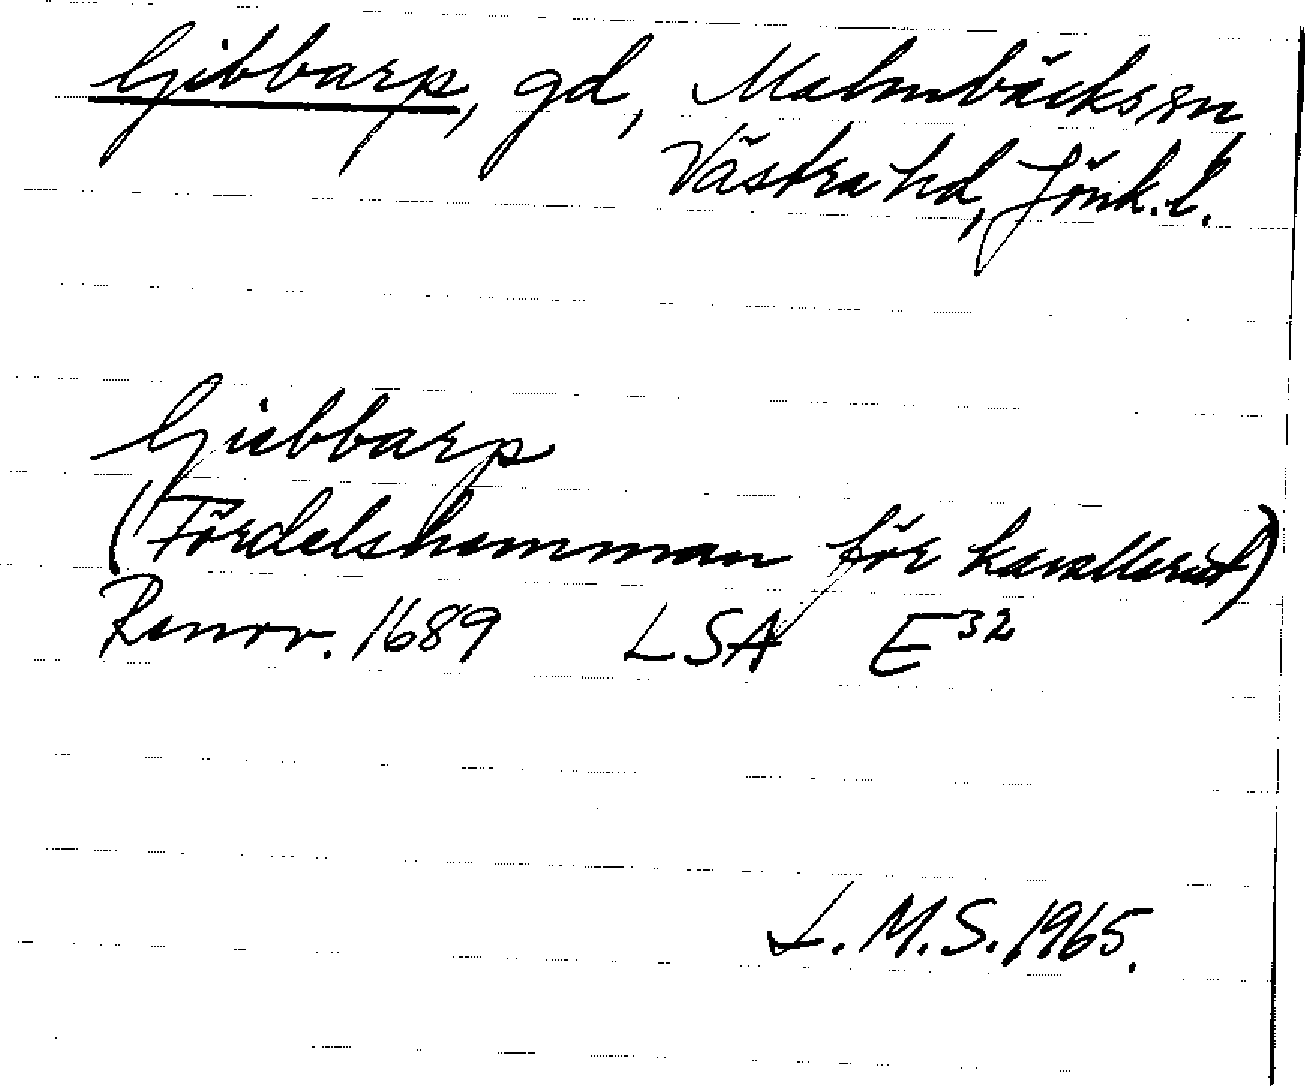 Gibbarp, gd, Malmbäcks sn,
Västra hd, Jönk. l.
Giebbarp
(Fördelshemman för kavalleriet)
Renov. 1689 LSA E³²
L. M. S. 1965.